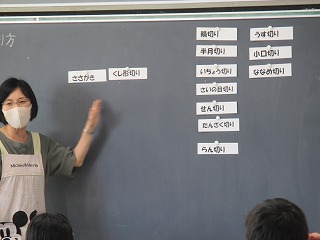 り方
ささがき
くし形切り
輪切り
半月切り
いちょう切り
さいの目切り
せん切り
たんざく切り
らん切り
うす切り
小口切り
ななめ切り